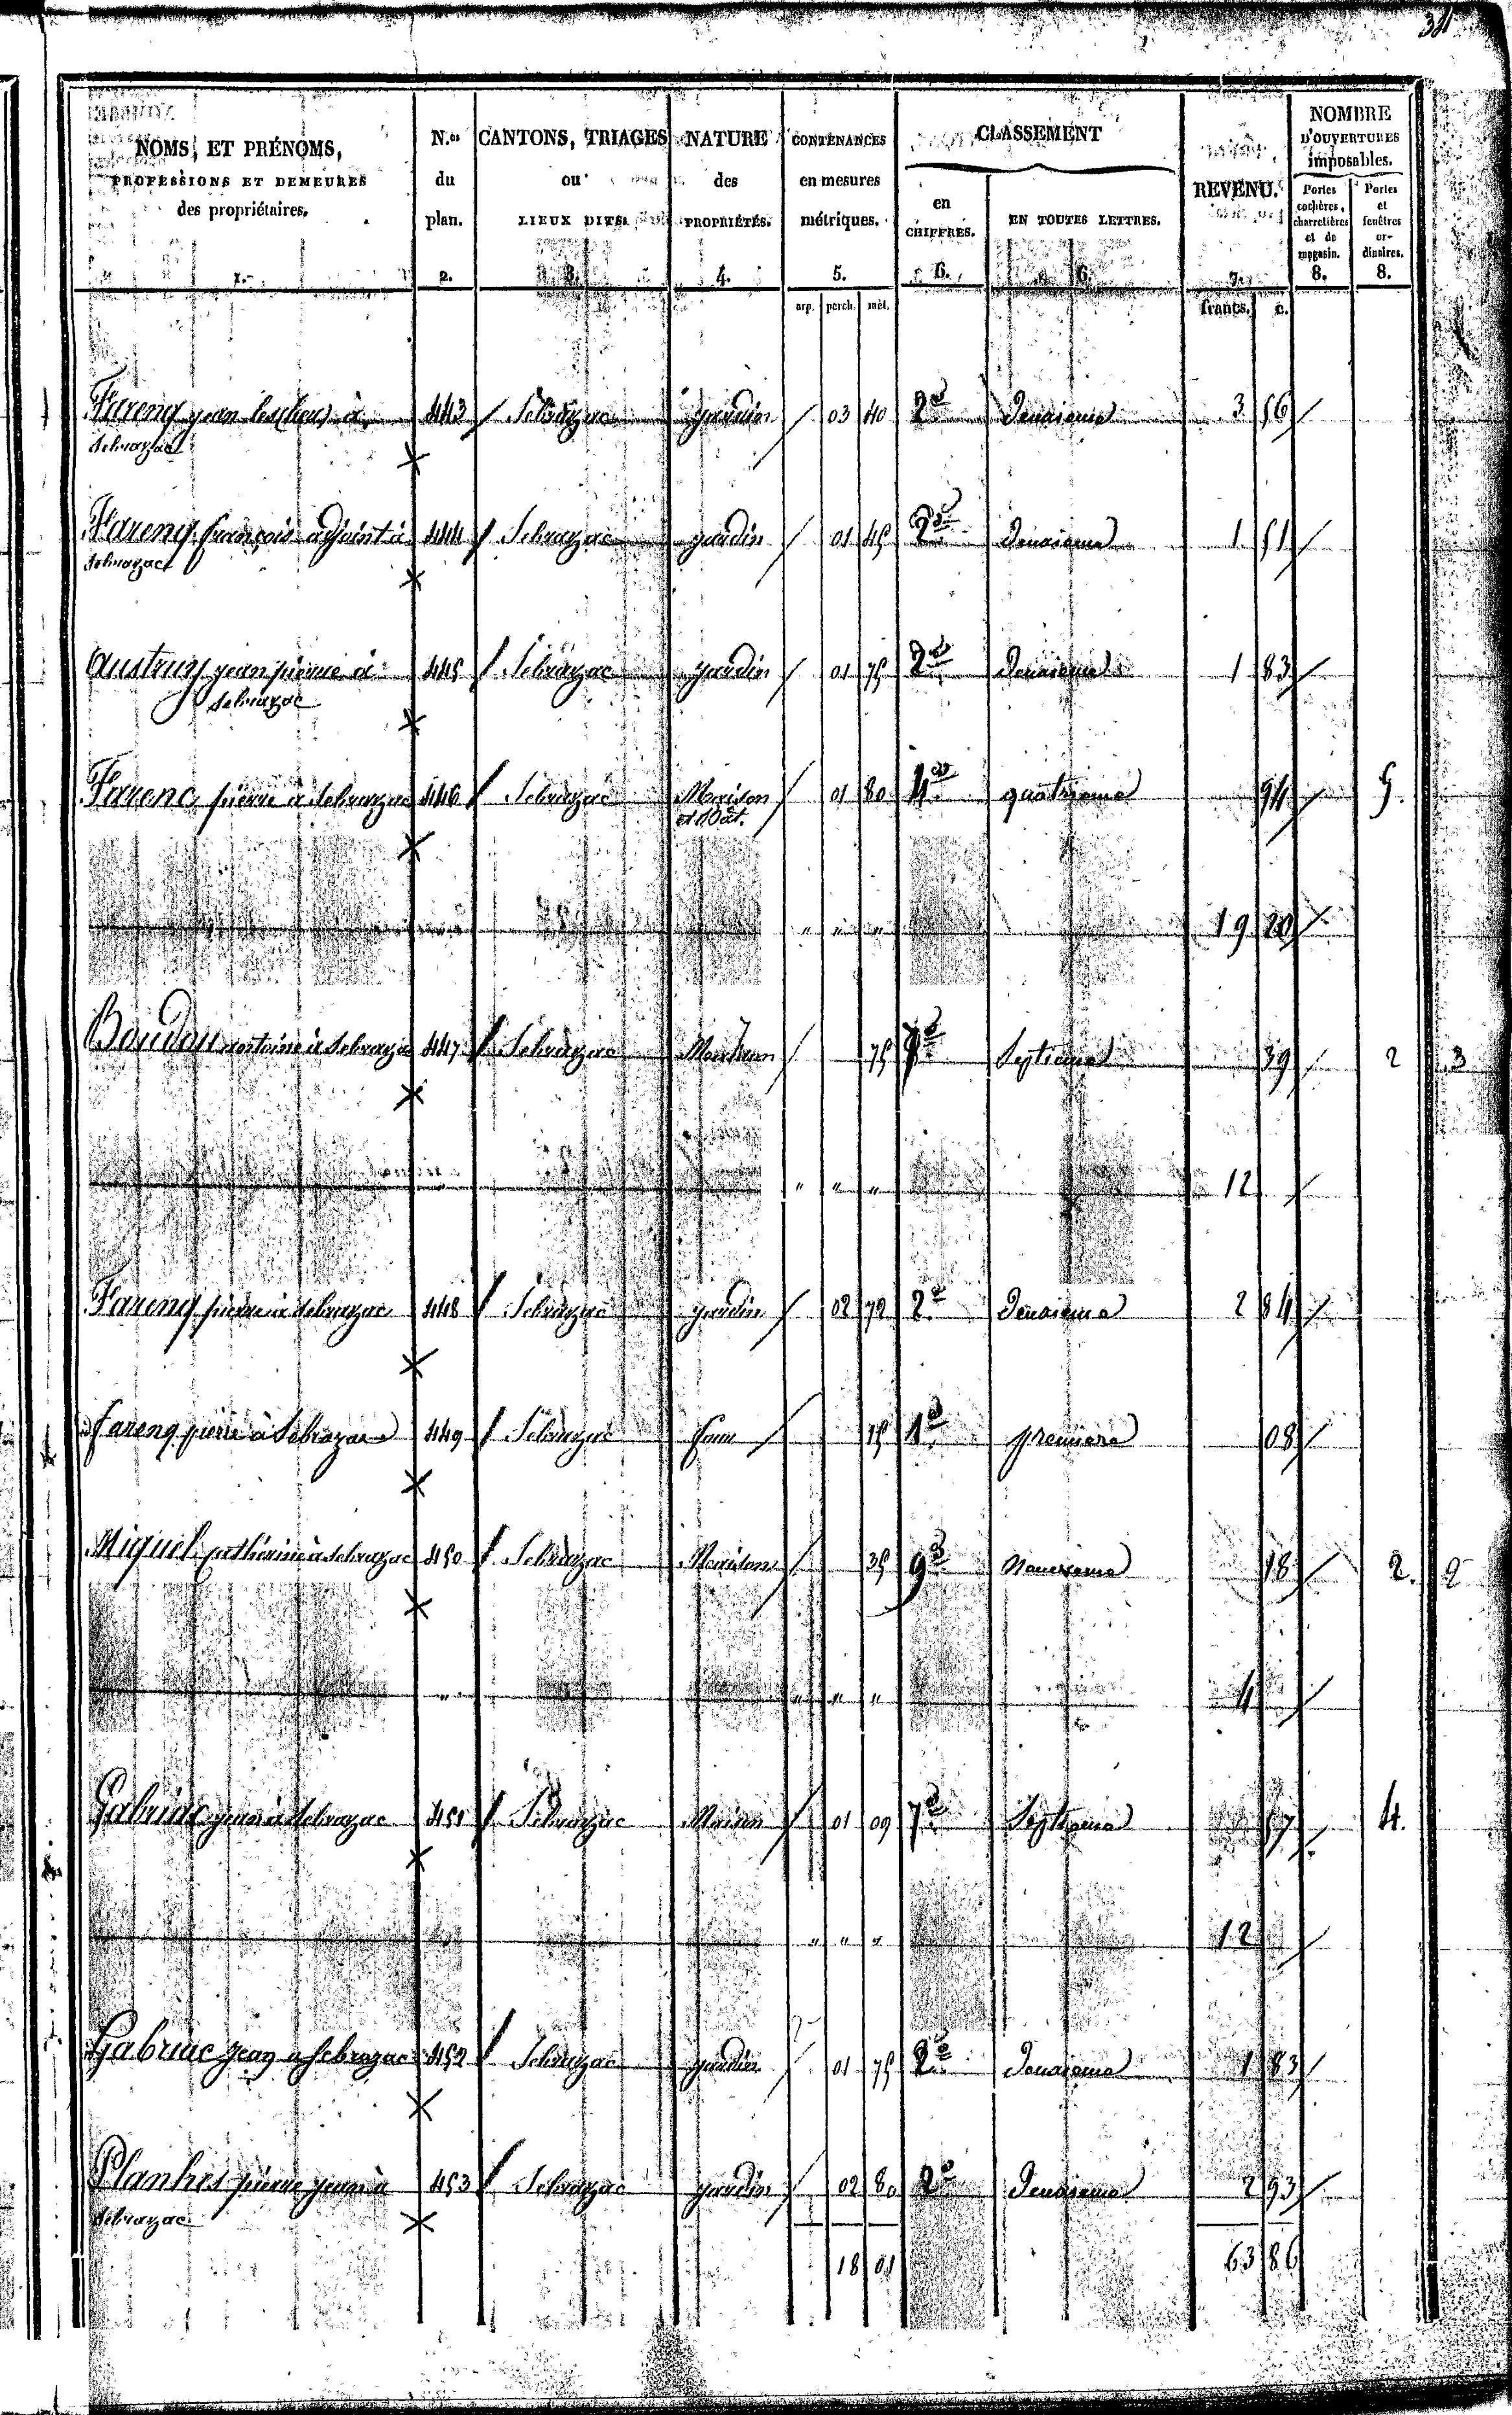 NOMS, ET PRÉNOMS, PROFESSIONS ET DEMEURES des propriétaires. 1.
N.os du plan. 2.
CANTONS, TRIAGES ou LIEUX DITS. 3.
NATURE des PROPRIÉTÉS. 4.
CONTENANCES en mesures métriques. 5.
CLASSEMENT
en CHIFFRES. 6.
EN TOUTES LETTRES. 6.
REVENU. 7.
NOMBRE D'OUVERTURES imposables.
Portes cochères, charretières et de magasin. 8.
Portes et fenêtres or-dinaires. 8.
arp. perch. mèt. francs. c.
Farenq jean à 443 Sebrazac jardin 03 40 2e Deuxieme 3 56
Sebrazac
Farenq françois adjoint à 444 Sebrazac jardin 01 45 2e Deuxieme 1 51
Sebrazac
Austruy jean pierre à 445 Sebrazac jardin 01 75 2e Deuxieme 1 83
Sebrazac
Farenq pierre à Sebrazac 446 Sebrazac Maison 01 80 4e quatrieme 94 5.
et bat.
" " " 19 20
Baudou antoine à Sebrazac 447 Sebrazac Maison 75 7e Septieme 39 2 3
" " " 12
Farenq pierre à Sebrazac 448 Sebrazac jardin 02 72 2e Deuxieme 2 84
Farenq pierre à Sebrazac 449 Sebrazac 15 1e premiere 08
Miquel catherine à Sebrazac 450 Sebrazac Maison 35 9e Neuvieme 18 2. 2
" " " " 4
Gabriac jean à Sebrazac 451 Sebrazac Maison 01 09 7e Septieme 57 4.
" " " 12
Gabriac jean à Sebrazac 452 Sebrazac jardin 01 75 2e Deuxieme 1 83
Planhes pierre jean à 453 Sebrazac jardin 02 80 2e Deuxieme 2 93
Sebrazac
18 01 63 86